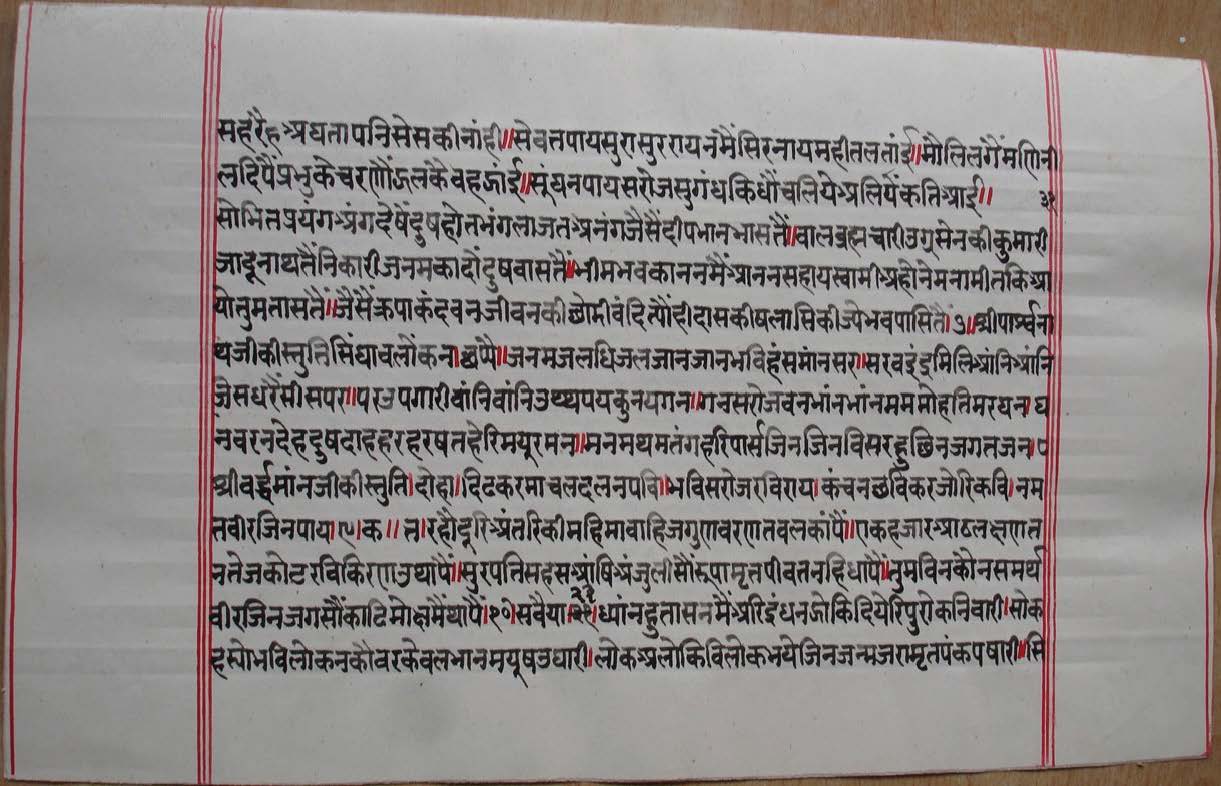 सहरैहअघतापनिसेसकीनांही॥सेवतपायसुरासुररायनमैंसिरनायमहीतलतांई॥मौलिलगैंमणिनी
लदिपैंप्रभुकेचरणौंझलकैवहझांई॥सूंघनपायसरोजसुगंधकिधौंचलियेअलिपंकतिआई॥ ३
सोभितप्रयंगअंगदेषेंदुषहोतभंगलाजतअनंगजैसैंदीपभानभासतैं॥वालब्रह्मचारीउग्रसेनकीकुमारी
जादूनाथतैंनिकारीजनमकादोंदुषवासतैं॥भीमभवकाननमैंआननसहायस्वामीअहोनेमनामीतकिआ
योतुमतासतैं॥जैसैंक्रपाकंदवनजीवनकीछोडीवंदित्यौंहीदासकीषलासिकीज्येभवपासितैं।७॥श्रीपार्श्वना
थजीकीस्तुतिसिंघावलोकनाछप्पै॥जनमजलधिजलजानजानभविहंसमांनसर॥सरवइंद्रमिलिआंनिआंनि
जेसधरैंसीसपर॥परउपगारीवांनिवांनिउथ्थपयकुनयगन॥गनसरोजवनभांनभांनमममोहतिमरघन॥घ
नवरनदेहदुषदाहहरहरषतहेरिमयूरमन॥मनमथमतंगहरिपार्सजिनजिनविसरहुछिनजगतजन॥८
श्रीवर्द्धमांनजीकीस्तुति।दोहा।दिढकरमाचलदलनपवि॥भविसरोजरविराय।कंचनछविकरजोरिकवि।नम
तवीरजिनपाय।९।क॥त॥रहौदूरिअंतरिकीमहिमावाहिजगुणवरणतवलकांपैं॥एकहजारआठलक्षणत
नतेजकोटरविकिरणउथापैं॥सुरपतिसहसआंषिअंजुलीसौंरूपामृतपीवतनहिधापैं॥तुमविनकौनसमर्थ
वीरजिनजगसौंकाढिमोक्षमैंथापैं।१०।सवैया।२१।ध्यांनहुतासनमैंअरिईंधनझोकिदियेरिपुरोकनिवारी।सोक
हस्योभविलोकनकौवरकेवलभानमयूषउघारी।लोकअलोकिविलोकभयेजिनजन्मजरामृतपंकपषारी॥सि